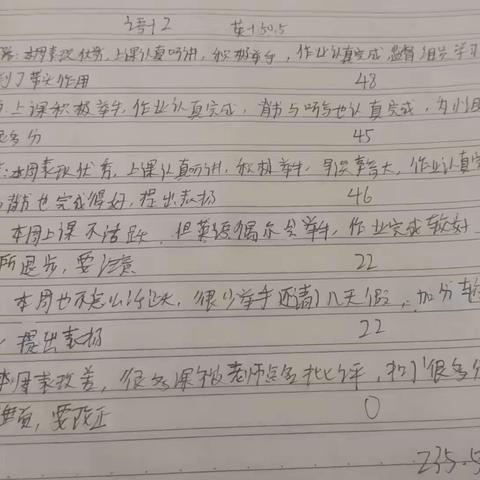 语+2 英+50.5
：本周表现优秀，上课认真听讲，积极举手，作业认真完成，监督组员学习
到了带头作用 48
：上课积极举手，作业认真完成，背书与听写也认真完成，为小组
多分 45
：本周表现优秀，上课认真听讲，积极举手，早读声音大，作业认真完
背书也完成得好，提出表扬 46
本周上课不活跃，但英语偶尔会举手，作业完成较好
所退步，要注意 22
本周也不怎么活跃，很少举手还请了几天假，加分较
，提出表扬 22
本周表现差，很多课被老师点名批评，扣了很多分
要改正 0
235.5